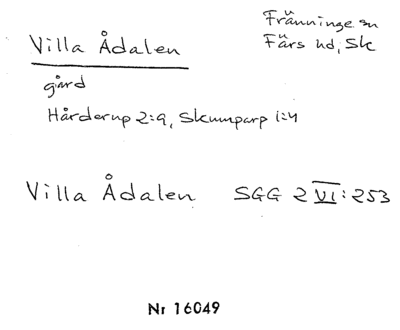 Villa Ådalen
Fränninge sn
Färs hd, Sk
gård
Hårderup 2:9, Skumparp 1:4
Villa Ådalen SGG 2 VI:253
Nr 16049